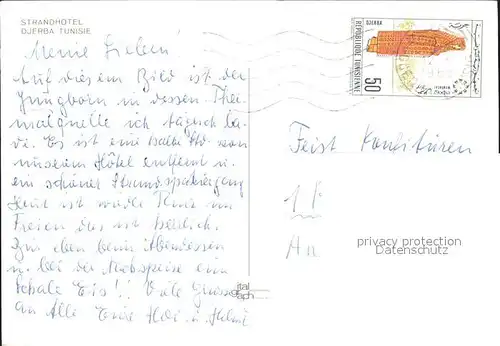 STRANDHOTEL
DJERBA TUNISIE
Meine Lieben!
Auf diesem Bild ist der
Jungborn in dessen Ther-
malquelle ich täglich ba-
de. Es ist eine halbe Std. von
unserem Hotel entfernt u.
ein schöner Strandspaziergang
Heut ist warde im
Freien das ist herrlich.
Bin eben beim Abendessen
u. bei der Nachspeise ein
Schale Eis!! Viele Grüsse
an Alle Eure u. Helmi
DJERBA
REPUBLIQUE TUNISIENNE
50
Feist Konfitüren
privacy protection
Datenschutz